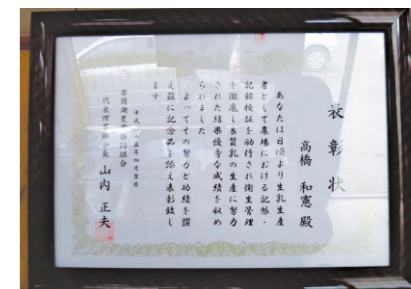 表彰状
高橋 和憲 殿
あなたは日頃より生乳生産
者として農場における記帳・
記録検証を励行され衛生管理
を徹底し良質乳の生産に努力
された結果優秀な成績を収め
られました
よってその努力と功績を讃
え茲に記念品を添え表彰致し
ます
平成 年四月 日
農業協同組合
代表理事組合長 山内 正夫